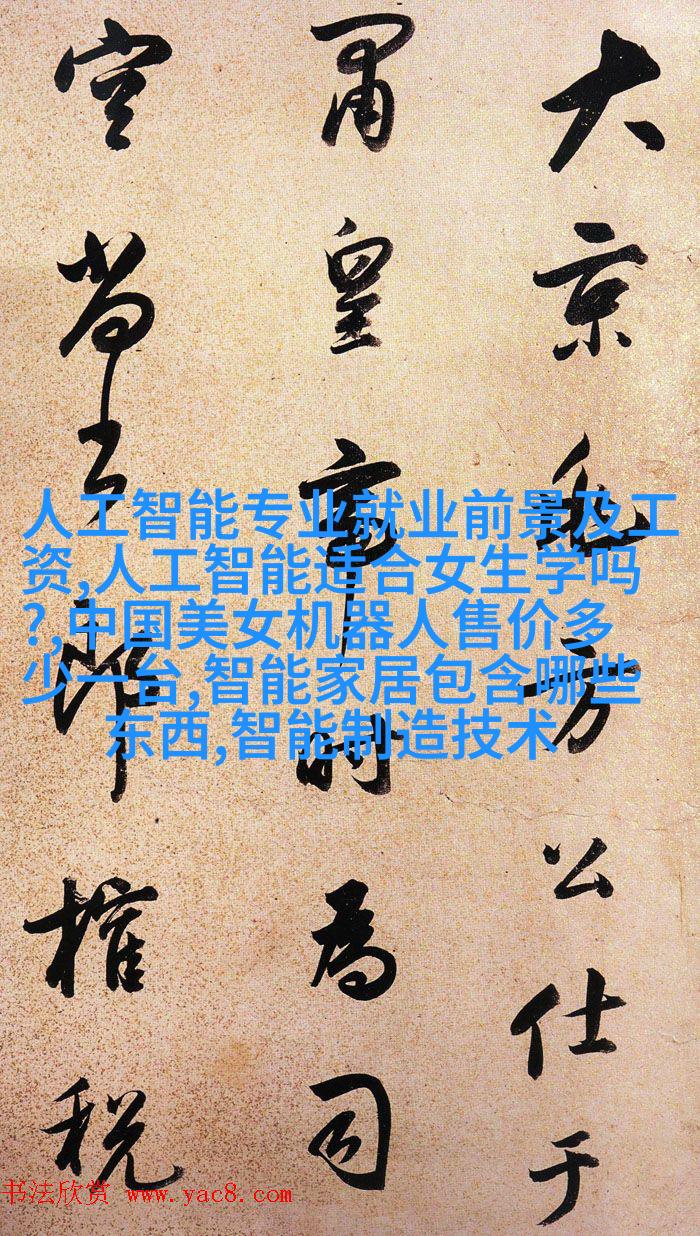 大京兆方公仕于
肅皇帝時為司
空尚書郎榷税
人工智能专业就业前景及工
资,人工智能适合女生学吗
?,中国美女机器人售价多
少一台,智能家居包含哪些
东西,智能制造技术
书法欣赏 www.yac8.com